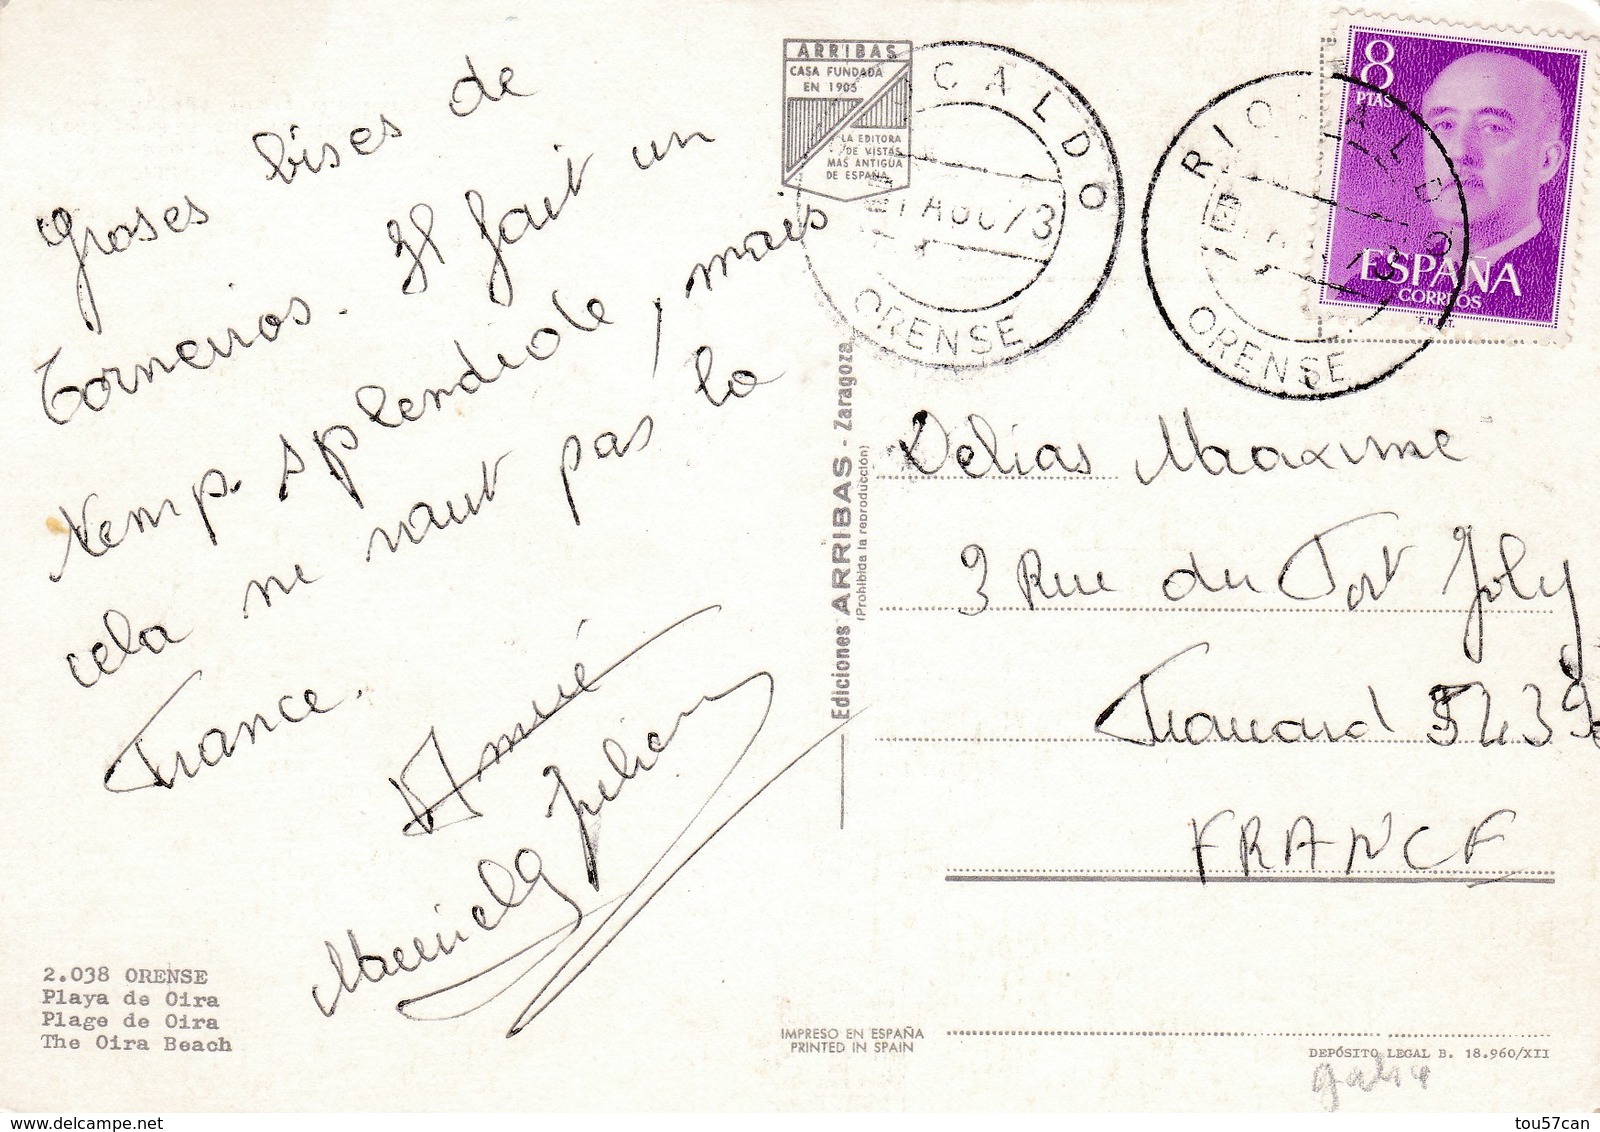 Groses bises de
Torneiros. Il fait un
temp. splendide, mais
cela ne vaut pas la
France.
Aimé
Julien
2.038 ORENSE
Playa de Oira
Plage de Oira
The Oira Beach
ARRIBAS
CASA FUNDADA
EN 1905
LA EDITORA
DE VISTAS
MAS ANTIGUA
DE ESPAÑA
Ediciones ARRIBAS - Zaragoza
(Prohibida la reproducción)
IMPRESO EN ESPAÑA
PRINTED IN SPAIN
RIOCALDO
ORENSE
RIOCALDO
ORENSE
8
PTAS
ESPAÑA
CORREOS
F.N.M.T.
Delias Maxime
3 Rue du Fort Joly
Frouard 54390
FRANCE
DEPÓSITO LEGAL B. 18.960/XII
tou57can